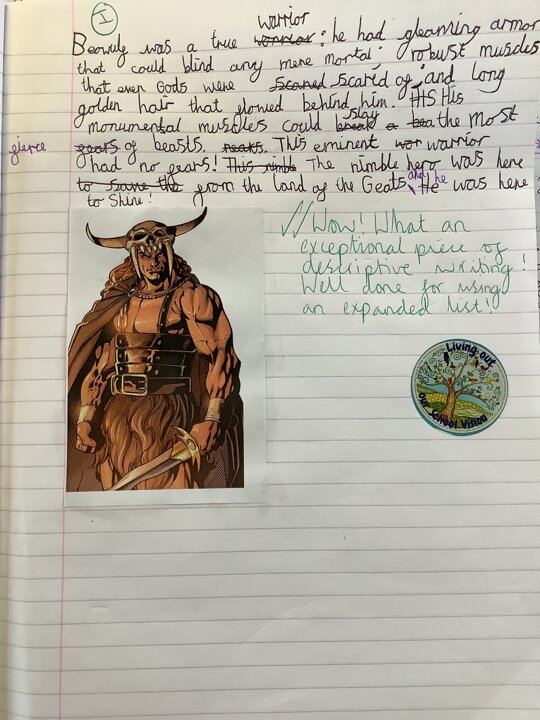 I
warrior
Beowulf was a true warrior : he had gleaming armor
that could blind any mere mortal; robust muscles
that even Gods were scared scared of, and long
golden hair that flowed behind him. HIS His
monumental muscles could break slay a bea the most
fierce
fears of beasts. This eminent war warrior
had no fears! This nimble The nimble hero was here
to save the from the land of the Geats, and he He was here
to Shine!
// Wow! What an
exceptional piece of
descriptive writing!
Well done for using
an expanded list!
Living out
our School Vision